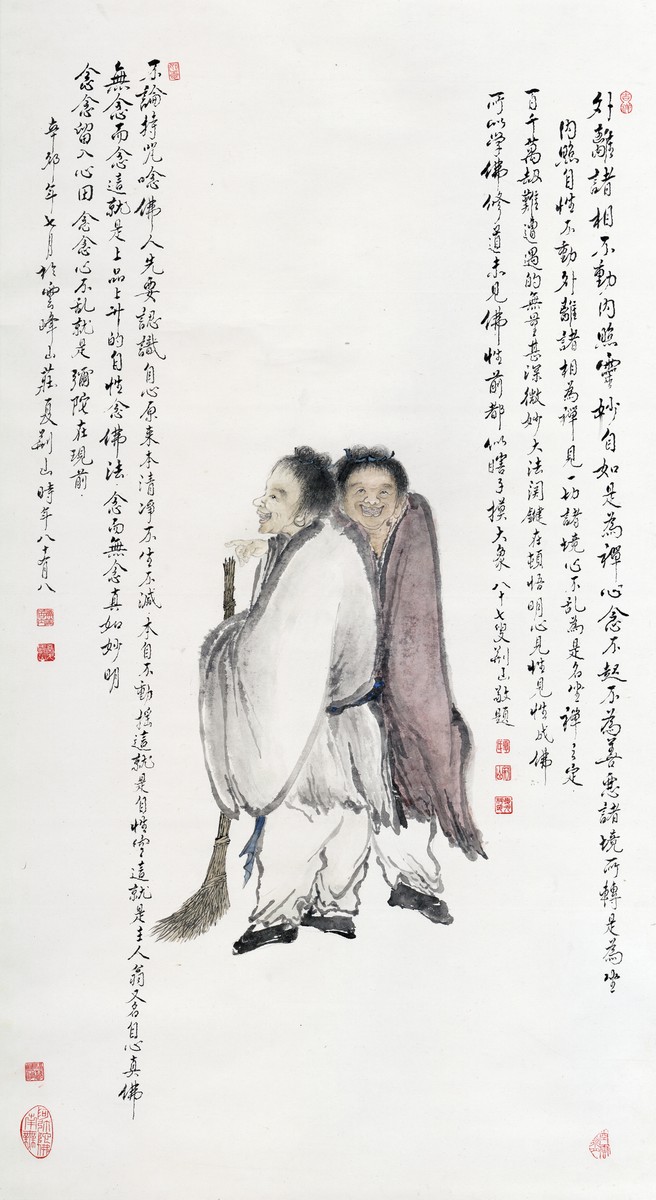 外離諸相不動內照靈妙自如是為禪心念不起不為善惡諸境所轉是為坐
內照自性不動外離諸相為禪見一切諸境心不乱為是名坐禪之定
百千萬劫難遭遇的無上甚深微妙大法関鍵在頓悟明心見性見性成佛
所以學佛修道未見佛性前都似瞎子摸大象 八十七叟荊山敬題
不論持咒唸佛人先要認識自心原來本清净不生不滅本自不動搖這就是自性空這就是主人翁又名自心真佛
無念而念這就是上品上升的自性念佛法念而無念真如妙明
念念留入心田念念心不乱就是彌陀在現前
辛卯年七月於雲峰山莊夏荊山時年八十有八
南無阿弥陀佛